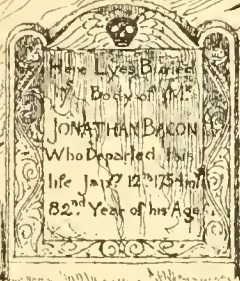 Here Lyes Buried
yᵉ Body of Mʳ
JONATHAN BACON
Who Departed this
life Janʳʸ 12ᵗʰ 1754 in yᵉ
82.ⁿᵈ Year of his Age.